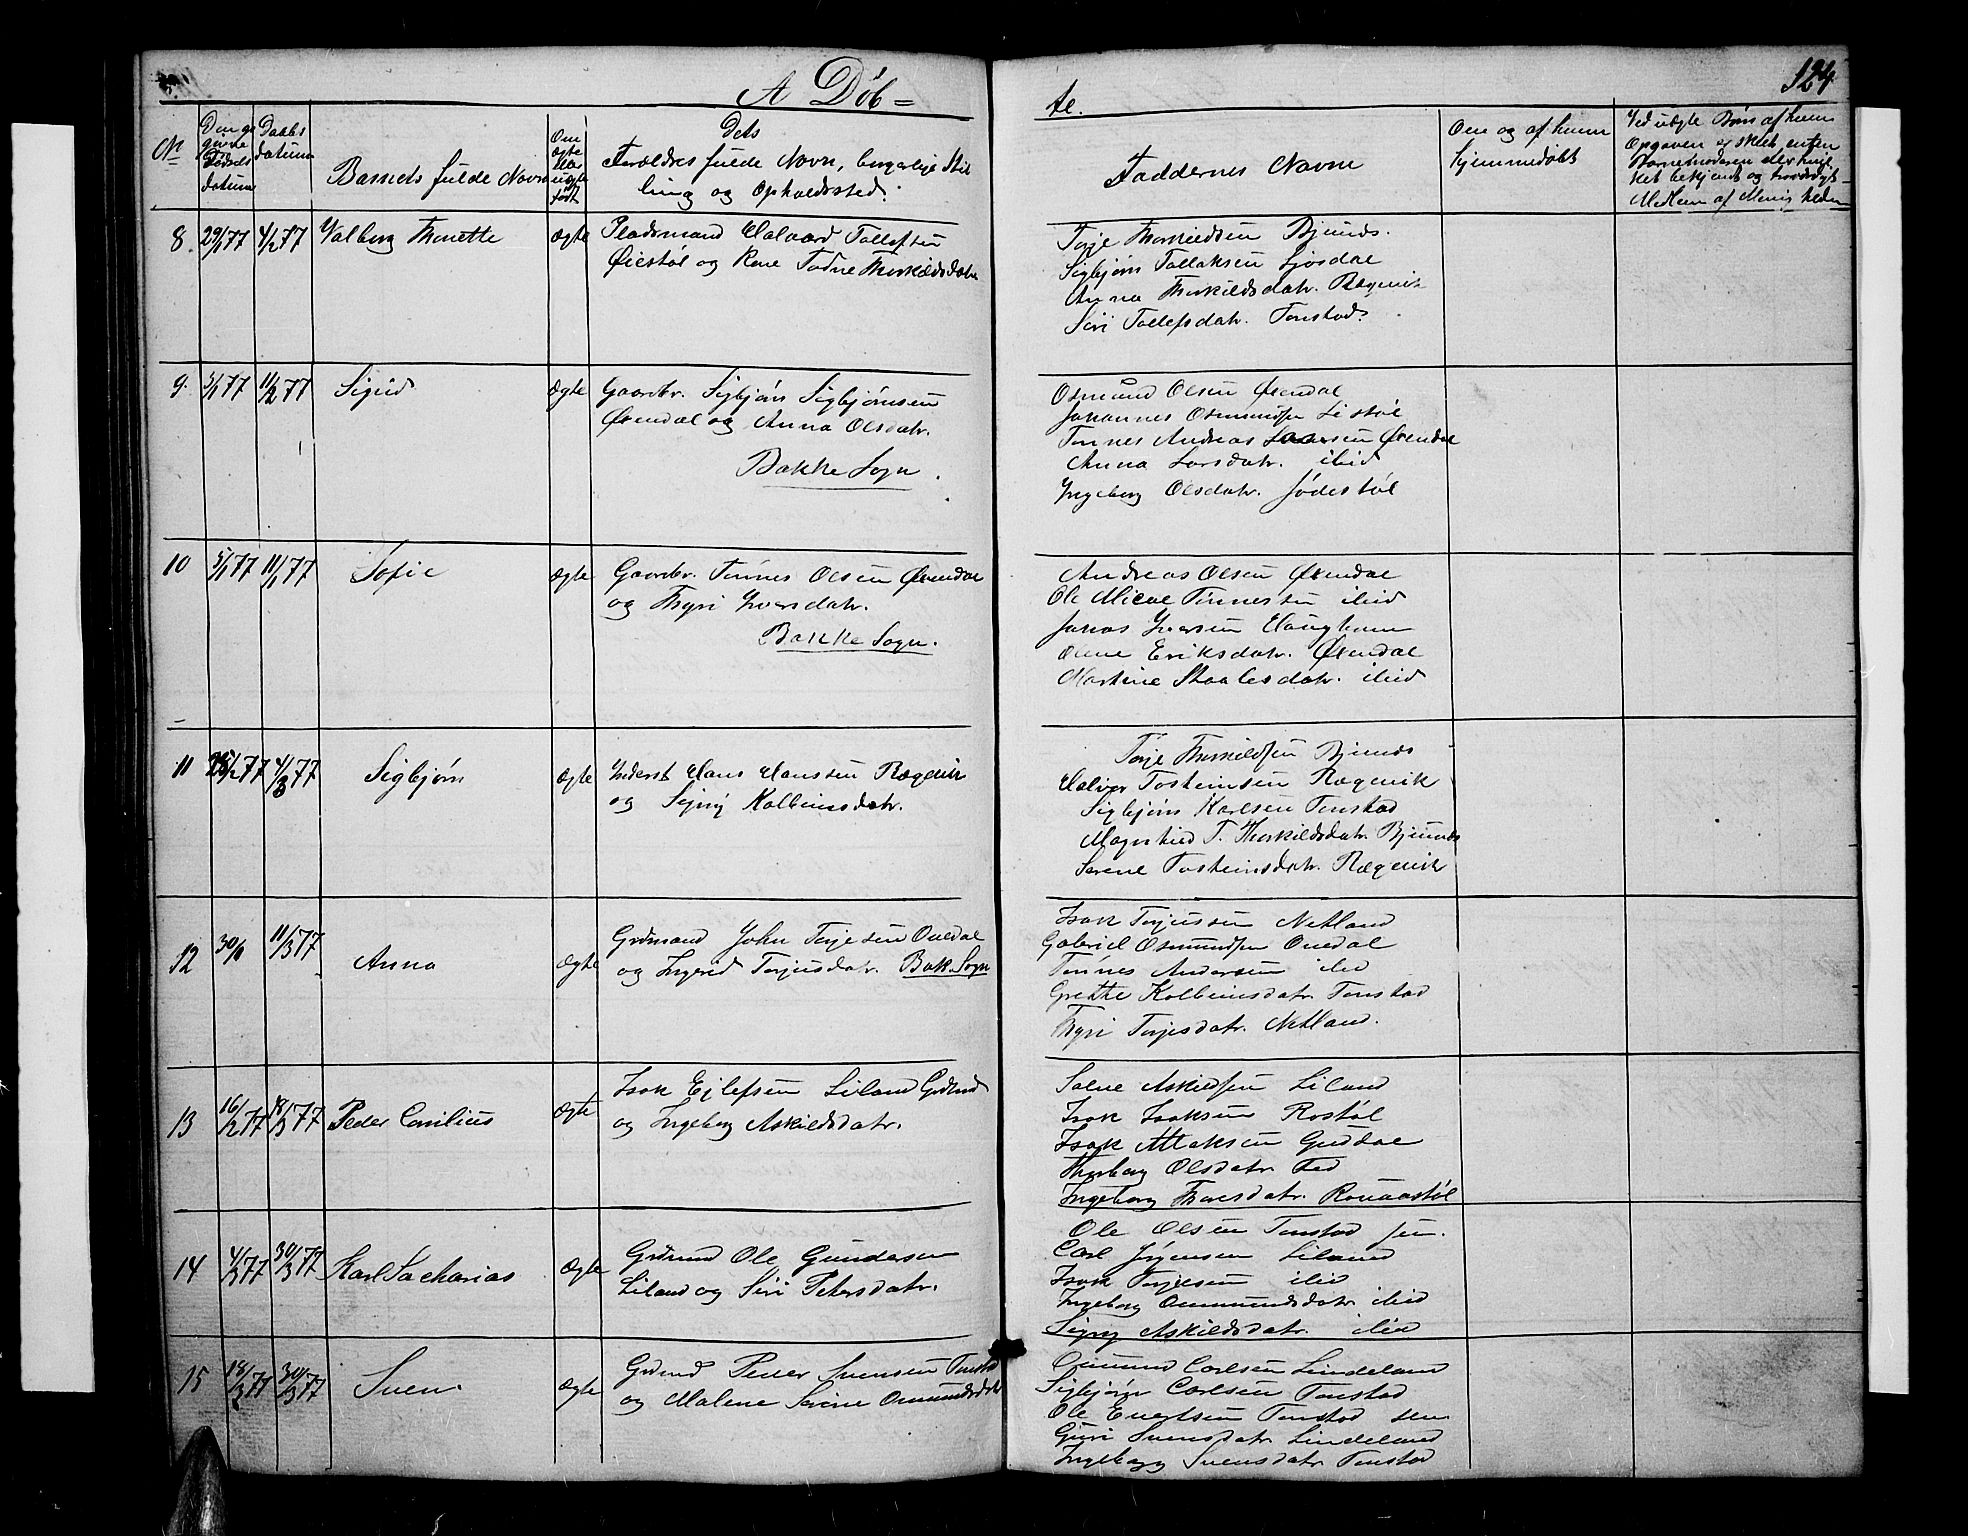 A Döb=
te.
124
№
Den op
givne
Fødsels
datum
Daabs
datum
Barnets fulde Navn
Om
ægte
eller
uægte
født
Dets
Forældres fulde Navn, borgerlige Stil
ling og Opholdssted.
Faddernes Navne
Om og af hvem
hjemmedøbt
Ved uægte Børn af hvem
Opgaven er skeet, enten
Barnemoderen eller
bekjendt og
Medlem af Menigheden
8. 29/1 77 4/2 77 Valborg Thonette ægte Pladsmand Halvard Tollefsen
Øiestøl og Kone Todne Thorkildsdatr
Torje Thorkildsen Bjunes.
Sigbjørn Tollaksen Josdal
Anna Thorkildsdatr. Rægevik
Siri Tollefsdatr. Tonstad.
9. 5/1 77 11/2 77 Sigrid ægte Gaardbr. Sigbjørn Sigbjørnsen
Øxendal og Anna Olsdatr.
Bakke Sogn.
Osmund Olsen Øxendal
Johannes Osmundsen Listøl
Tønnes Andreas Larsen Øxendal
Anna Larsdatr. ibid
Ingeborg Olsdatr. Jødestøl
10 5/1 77 11/1 77 Sofie ægte Gaardbr. Tønnes Olsen Øxendal
og Thyri Iversdatr.
Bakke Sogn.
Andreas Olsen Øxendal
Ole Mical Tønnessen ibid
Jonas Iversen Haughom
Anne Eriksdatr. Øxendal
Martine Staalesdatr. ibid
11 77 4/3 77 Sigbjørn ægte Inderst Hans Hanssen Rægevik
og Signÿ Kolbeinsdatr.
Torje Thorkildsen Bjunes
Halvor Tosteinsen Rægevik
Sigbjørn Karlsen Tonstad
Magnhild T. Thorkildsdatr. Bjunes
Serene Tosteinsdatr. Rægevik
12 30/1 11/3 77 Anna ægte Grdmand John Terjesen Ousdal
og Ingrid Terjusdatr. Bak. Sogn
Isak Terjussen Netland
Gabriel Osmundsen Ousdal
Tønnes Andersen ibid
Grethe Kolbeinsdatr Tonstad
Thyri Terjesdatr. Netland.
13 16/2 77 18/3 77 Peder Conilius ægte Isak Ejlefsen Liland Grdmd
og Ingeborg Askildsdatr.
Salve Askildsen Liland
Isak Isaksen Rostøl
Isak Atlaksen Guddal
Thorborg Olsdatr. Fed
Ingeborg Thoresdatr.
14 4/3 77 30/3 77 Karl Sacharias ægte Grdmnd Ole Gundersen
Liland og Siri Petersdatr.
Ole Olsen Tonstad jun.
Carl Jørgensen Liland
Isak Terjesen ibid
Ingeborg Ommundsdatr ibid
Signy Askildsdatr. ibid
15 18/3 77 30/3 77 Sven ægte Grdmnd Peder Svensen Tonstad
og Malene Serine Omundsdatr
Omund Carlsen Lindeland
Sigbjørn Carlsen Tonstad
Ole Evertsen Tonstad sen
Guri Svensdatr Lindeland
Ingeborg Svensdatr Tonstad